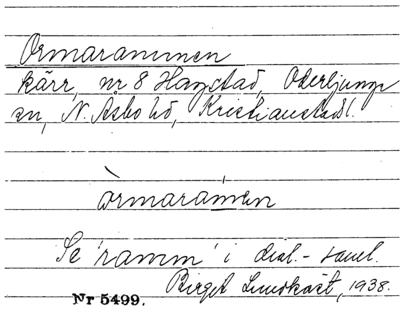 Ormarammen
kärr, nr 8 Hagstad, Oderljunga
sn, N. Åsbo hd, Kristianstads l.
òrmarámen
Se 'ramm' i dial.-saml.
Birgit Lundkvist, 1938.
Nr 5499.